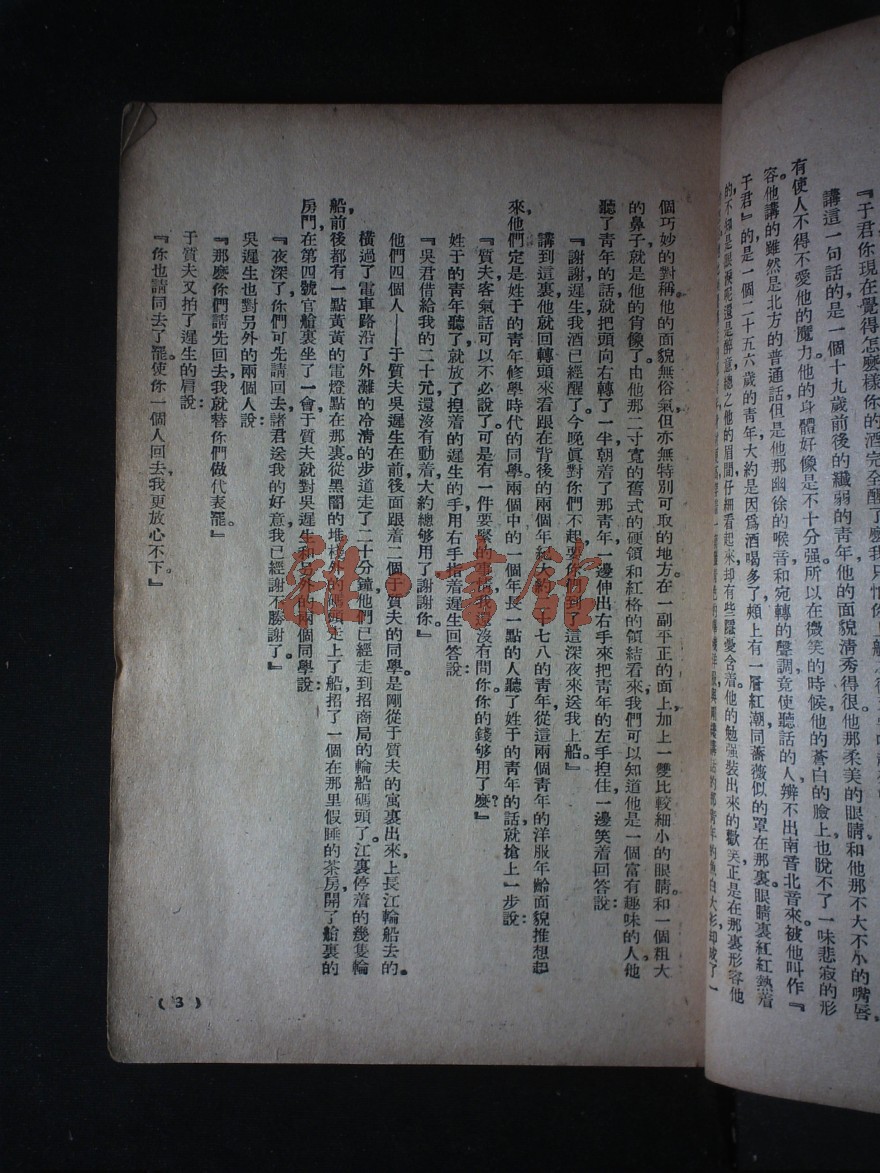 『于君你現在覺得怎麽樣你的酒完全醒了麽我只怕你上船
講這一句話的是一個十九歲前後的纖弱的青年他的面貌清秀得很他那柔美的眼睛和他那不大不小的嘴唇,
有使人不得不愛他的魔力他的身體好像是不十分强所以在微笑的時候他的蒼白的臉上也脫不了一味悲寂的形
容。他講的雖然是北方的普通話但是他那幽徐的喉音和宛轉的聲調竟使聽話的人辨不出南音北音來。被他叫作『
于君』的是一個二十五六歲的青年大約是因爲酒喝多了,頰上有一層紅潮同薔薇似的罩在那裏。眼睛裏紅紅熱着
是醉意總之他的眉間,仔細看起來却有些隱憂含着他的勉强裝出來的歡笑正是在那裏形容他
個巧妙的對稱。他的面貌無俗氣但亦無特別可取的地方在一副平正的面上加上一雙比較細小的眼睛和一個粗大
的鼻子就是他的肖像了由他那二寸寬的舊式的硬領和紅格的領結看來我們可以知道他是一個富有趣味的人他
聽了青年的話就把頭向右轉了一半朝着了那青年一邊伸出右手來把青年的左手捏住一邊笑着回答說:
『謝謝,遲生我酒已經醒了今晚眞對你們不起要你們到了這深夜來送我上船』
講到這裏他就回轉頭來看跟在背後的兩個年紀大約二十七八的青年從這兩個青年的洋服年齡面貌推想起
來,他們定是姓于的青年修學時代的同學兩個中的一個年長一點的人聽了姓于的青年的話,就搶上一步說:
『質夫客氣話可以不必說了可是有一件要緊的事情我還沒有問你你的錢够用了麽?』
姓于的青年聽了就放了捏着的遲生的手用右手指着遲生回答說:
『吳君借給我的二十元還沒有動着大約總够用了謝謝你。』
他們四個人——于質夫吳遲生在前後面跟着二個于質夫的同學是剛從于質夫的寓裏出來上長江輪船去的。
橫過了電車路沿了外灘的冷淸的步道走了二十分鐘他們已經走到招商局的輪船碼頭了。江裏停着的幾隻輪
船前後都有一點黃黃的電燈點在那裏從黑闇的堆棧外的碼頭走上了船招了一個在那里假睡的茶房,開了艙裏的
房門,在第四號官艙裏坐了一會于質夫就對吳遲生和另外的兩個同學說:
『夜深了,你們可先請回去,諸君送我的好意我已經謝不勝謝了』
吳遲生也對另外的兩個人說:
『那麽你們請先回去,我就替你們做代表罷。』
于質夫又拍了遲生的肩說:
『你也請同去了罷。使你一個人回去,我更放心不下。』
(3)
雜·書館